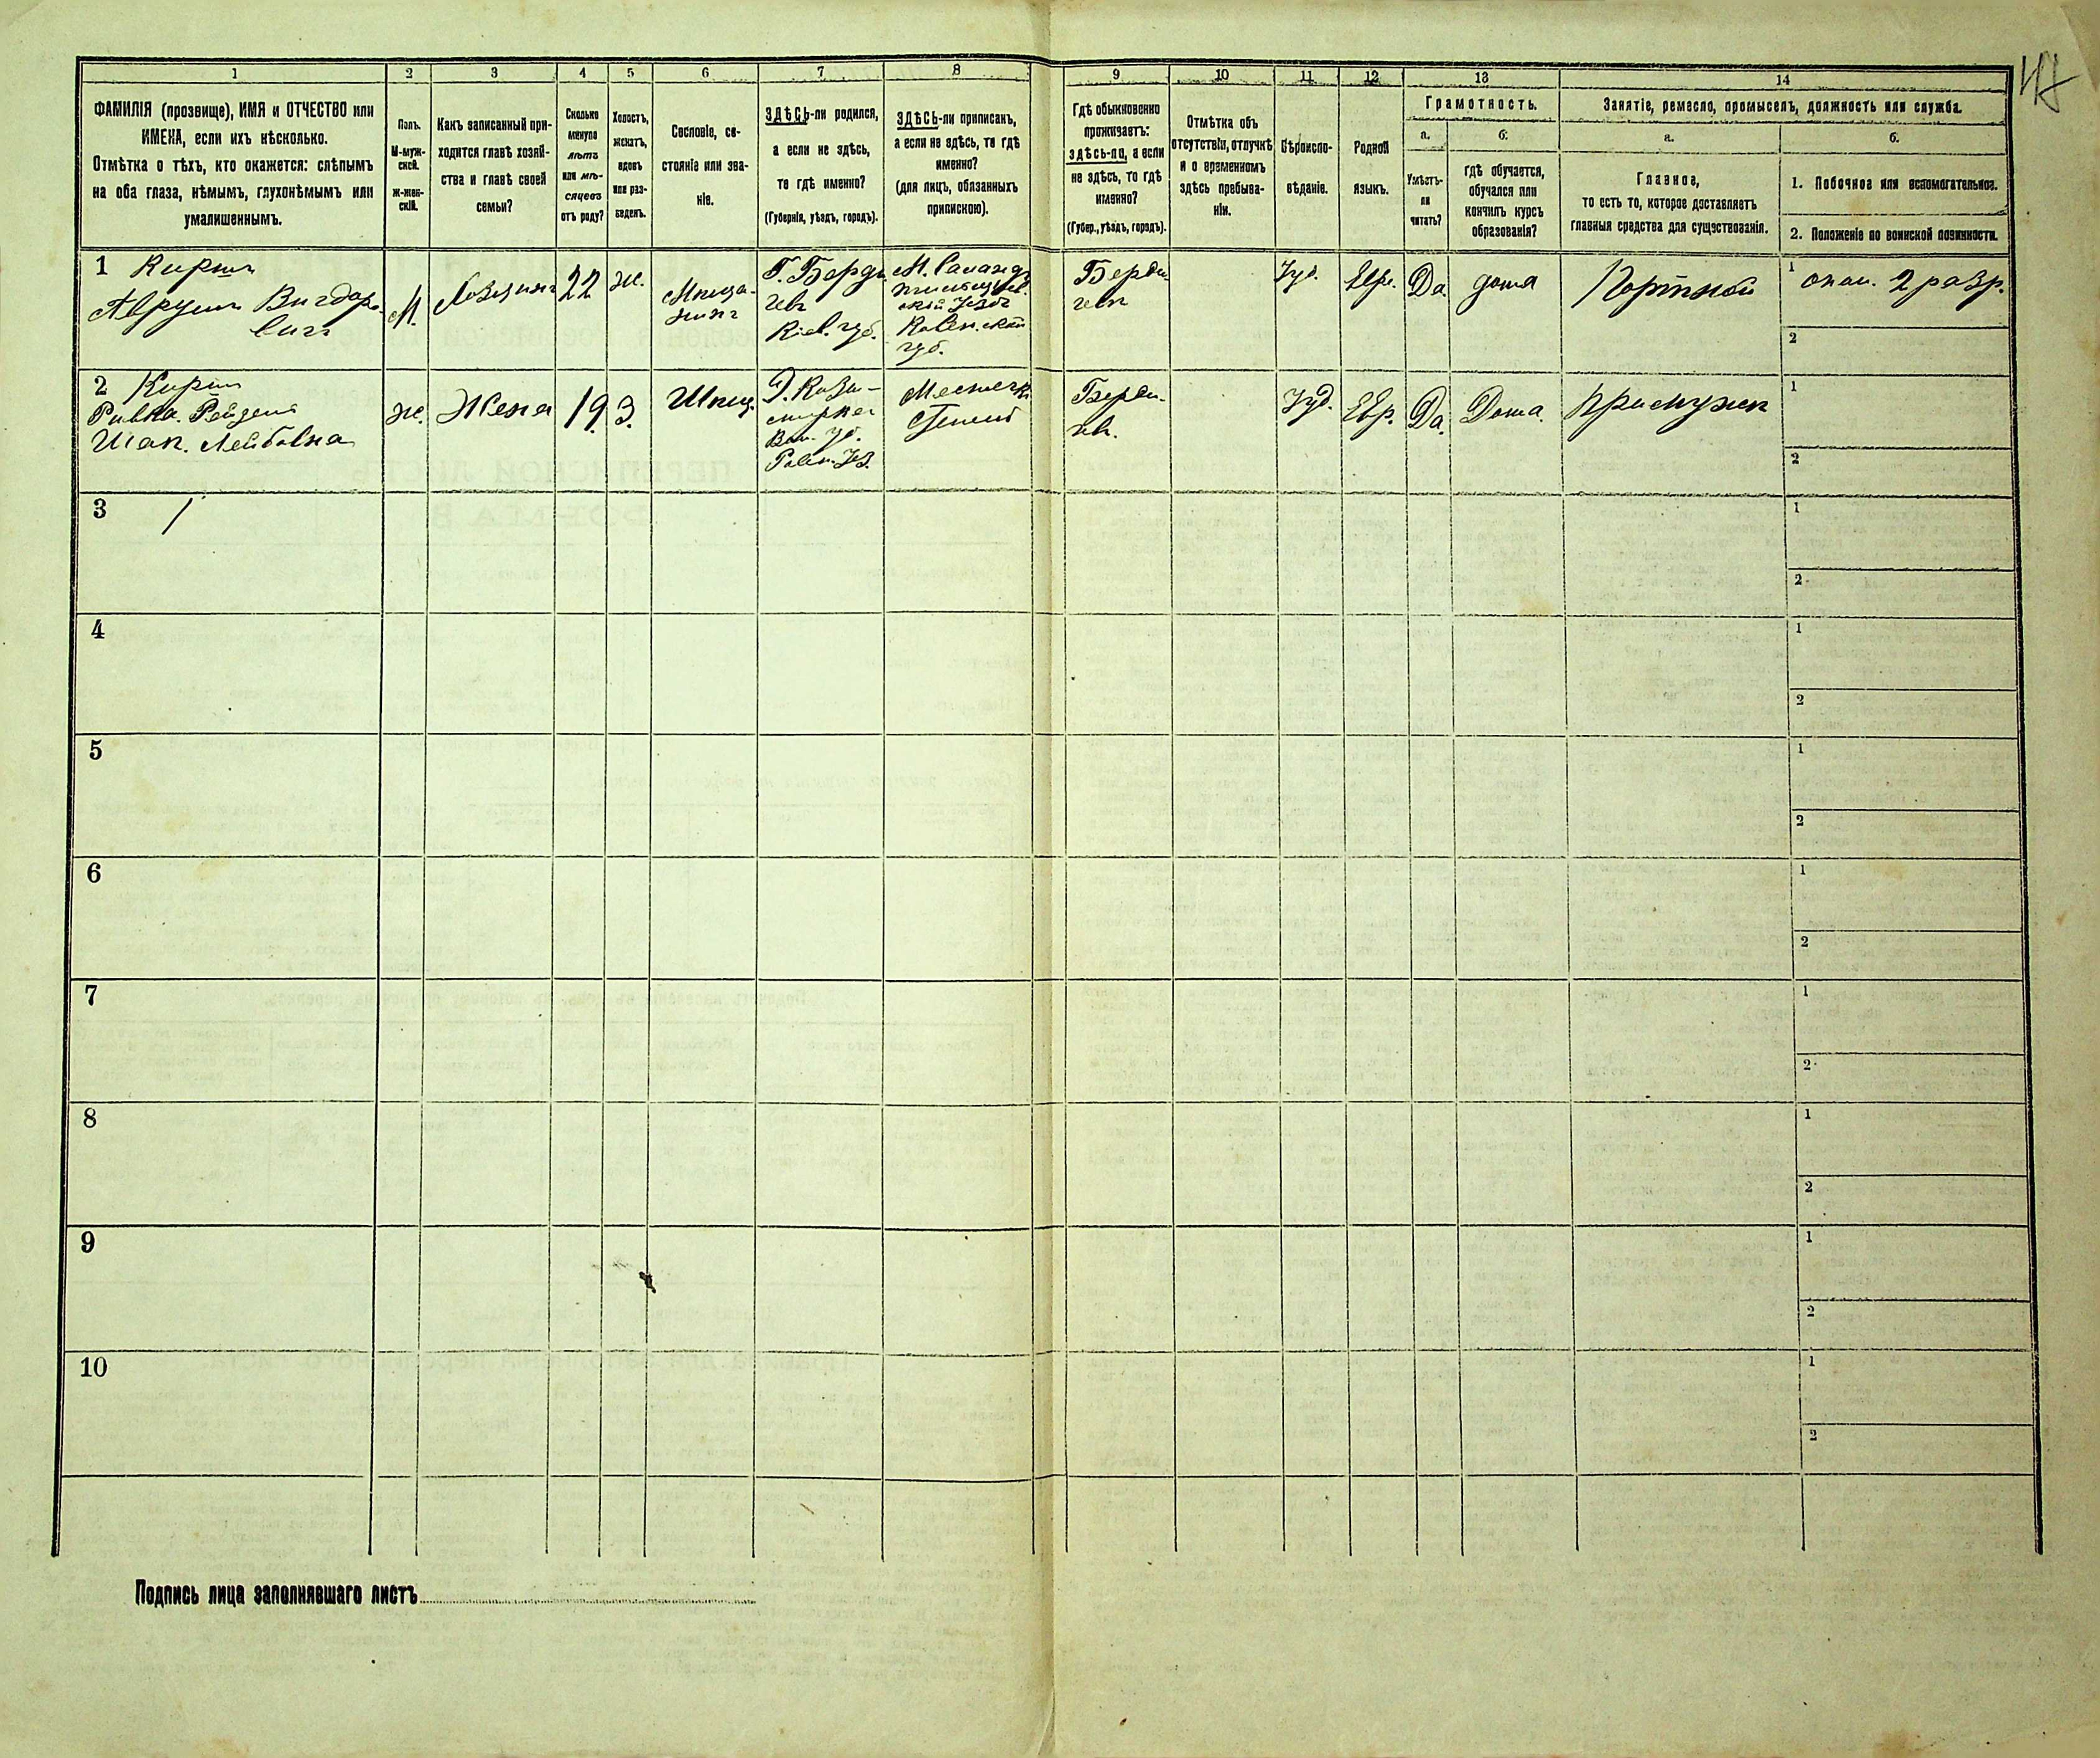 1 2 3 4 5 6 7 8 9 10 11 12 13 14
ФАМИЛІЯ (прозвище), ИМЯ и ОТЧЕСТВО или
ИМЕНА, если ихъ нѣсколько.
Отмѣтка о тѣхъ, кто окажется: слѣпымъ
на оба глаза, нѣмымъ, глухонѣмымъ или
умалишеннымъ.
Полъ.
М-муж-
ской.
Ж-жен-
скій.
Какъ записанный при-
ходится главѣ хозяй-
ства и главѣ своей
семьи?
Сколько
минуло
лѣтъ
или мѣ-
сяцевъ
отъ роду?
Холостъ,
женатъ,
вдовъ
или раз-
веденъ.
Сословіе, со-
стояніе или зва-
ніе.
ЗДѢСЬ-ли родился,
а если не здѣсь,
то гдѣ именно?
(Губернія, уѣздъ, городъ).
ЗДѢСЬ-ли приписанъ,
а если не здѣсь, то гдѣ
именно?
(для лицъ, обязанныхъ
припискою).
Гдѣ обыкновенно
проживаетъ:
здѣсь-ли, а если
не здѣсь, то гдѣ
именно?
(Губер., уѣздъ, городъ).
Отмѣтка объ
отсутствіи, отлучкѣ
и о временномъ
здѣсь пребыва-
ніи.
Вѣроиспо-
вѣданіе.
Родной
языкъ.
Грамотность.
а. б.
Умѣетъ-
ли
читать?
гдѣ обучается,
обучался или
кончилъ курсъ
образованія?
Занятіе, ремесло, промыселъ, должность или служба.
а. б.
Главное,
то есть то, которое доставляетъ
главныя средства для существованія.
1. Побочное или вспомогательное.
2. Положеніе по воинской повинности.
1 Киршъ
Аврумъ Вигдоро-
вичъ
М.
22
ж.
Мѣща-
нинъ
Г. Берди-
чевъ
Кіев. губ.
губ.
Берди-
чевъ
Іуд.
Евр.
Да
дома
Портной
1 2 разр.
2
2 Киршъ
Ривка Рейзена
ж.
Жена
19
З.
Мѣщ.
Местечк.
Берди-
Іуд.
Евр.
Да.
Дома.
При мужѣ
1
2
3
1
2
4
1
2
5
1
2
6
1
2
7
1
2
8
1
2
9
1
2
10
1
2
Подпись лица заполнявшаго листъ